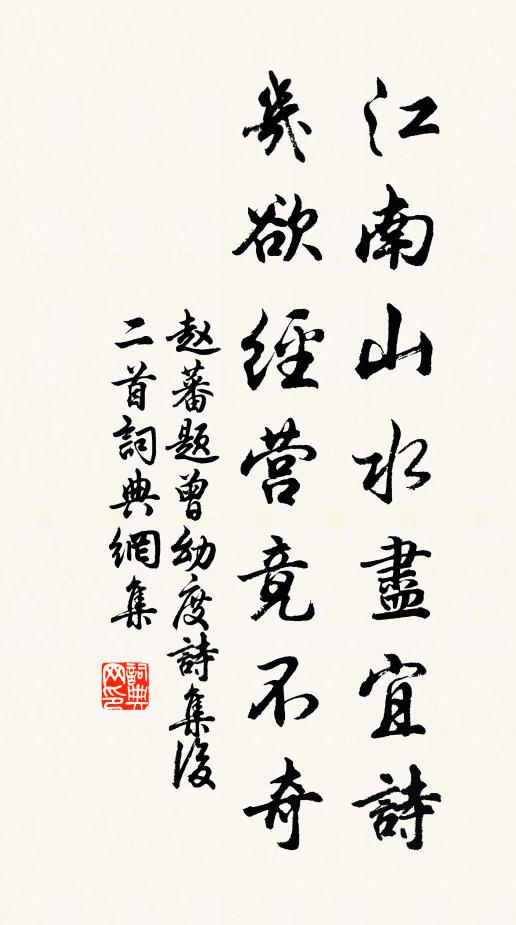 江南山水盡宜詩
幾欲經营竟不奇
赵蕃題曾幼度詩集後
二首詞典網集
詞典网印